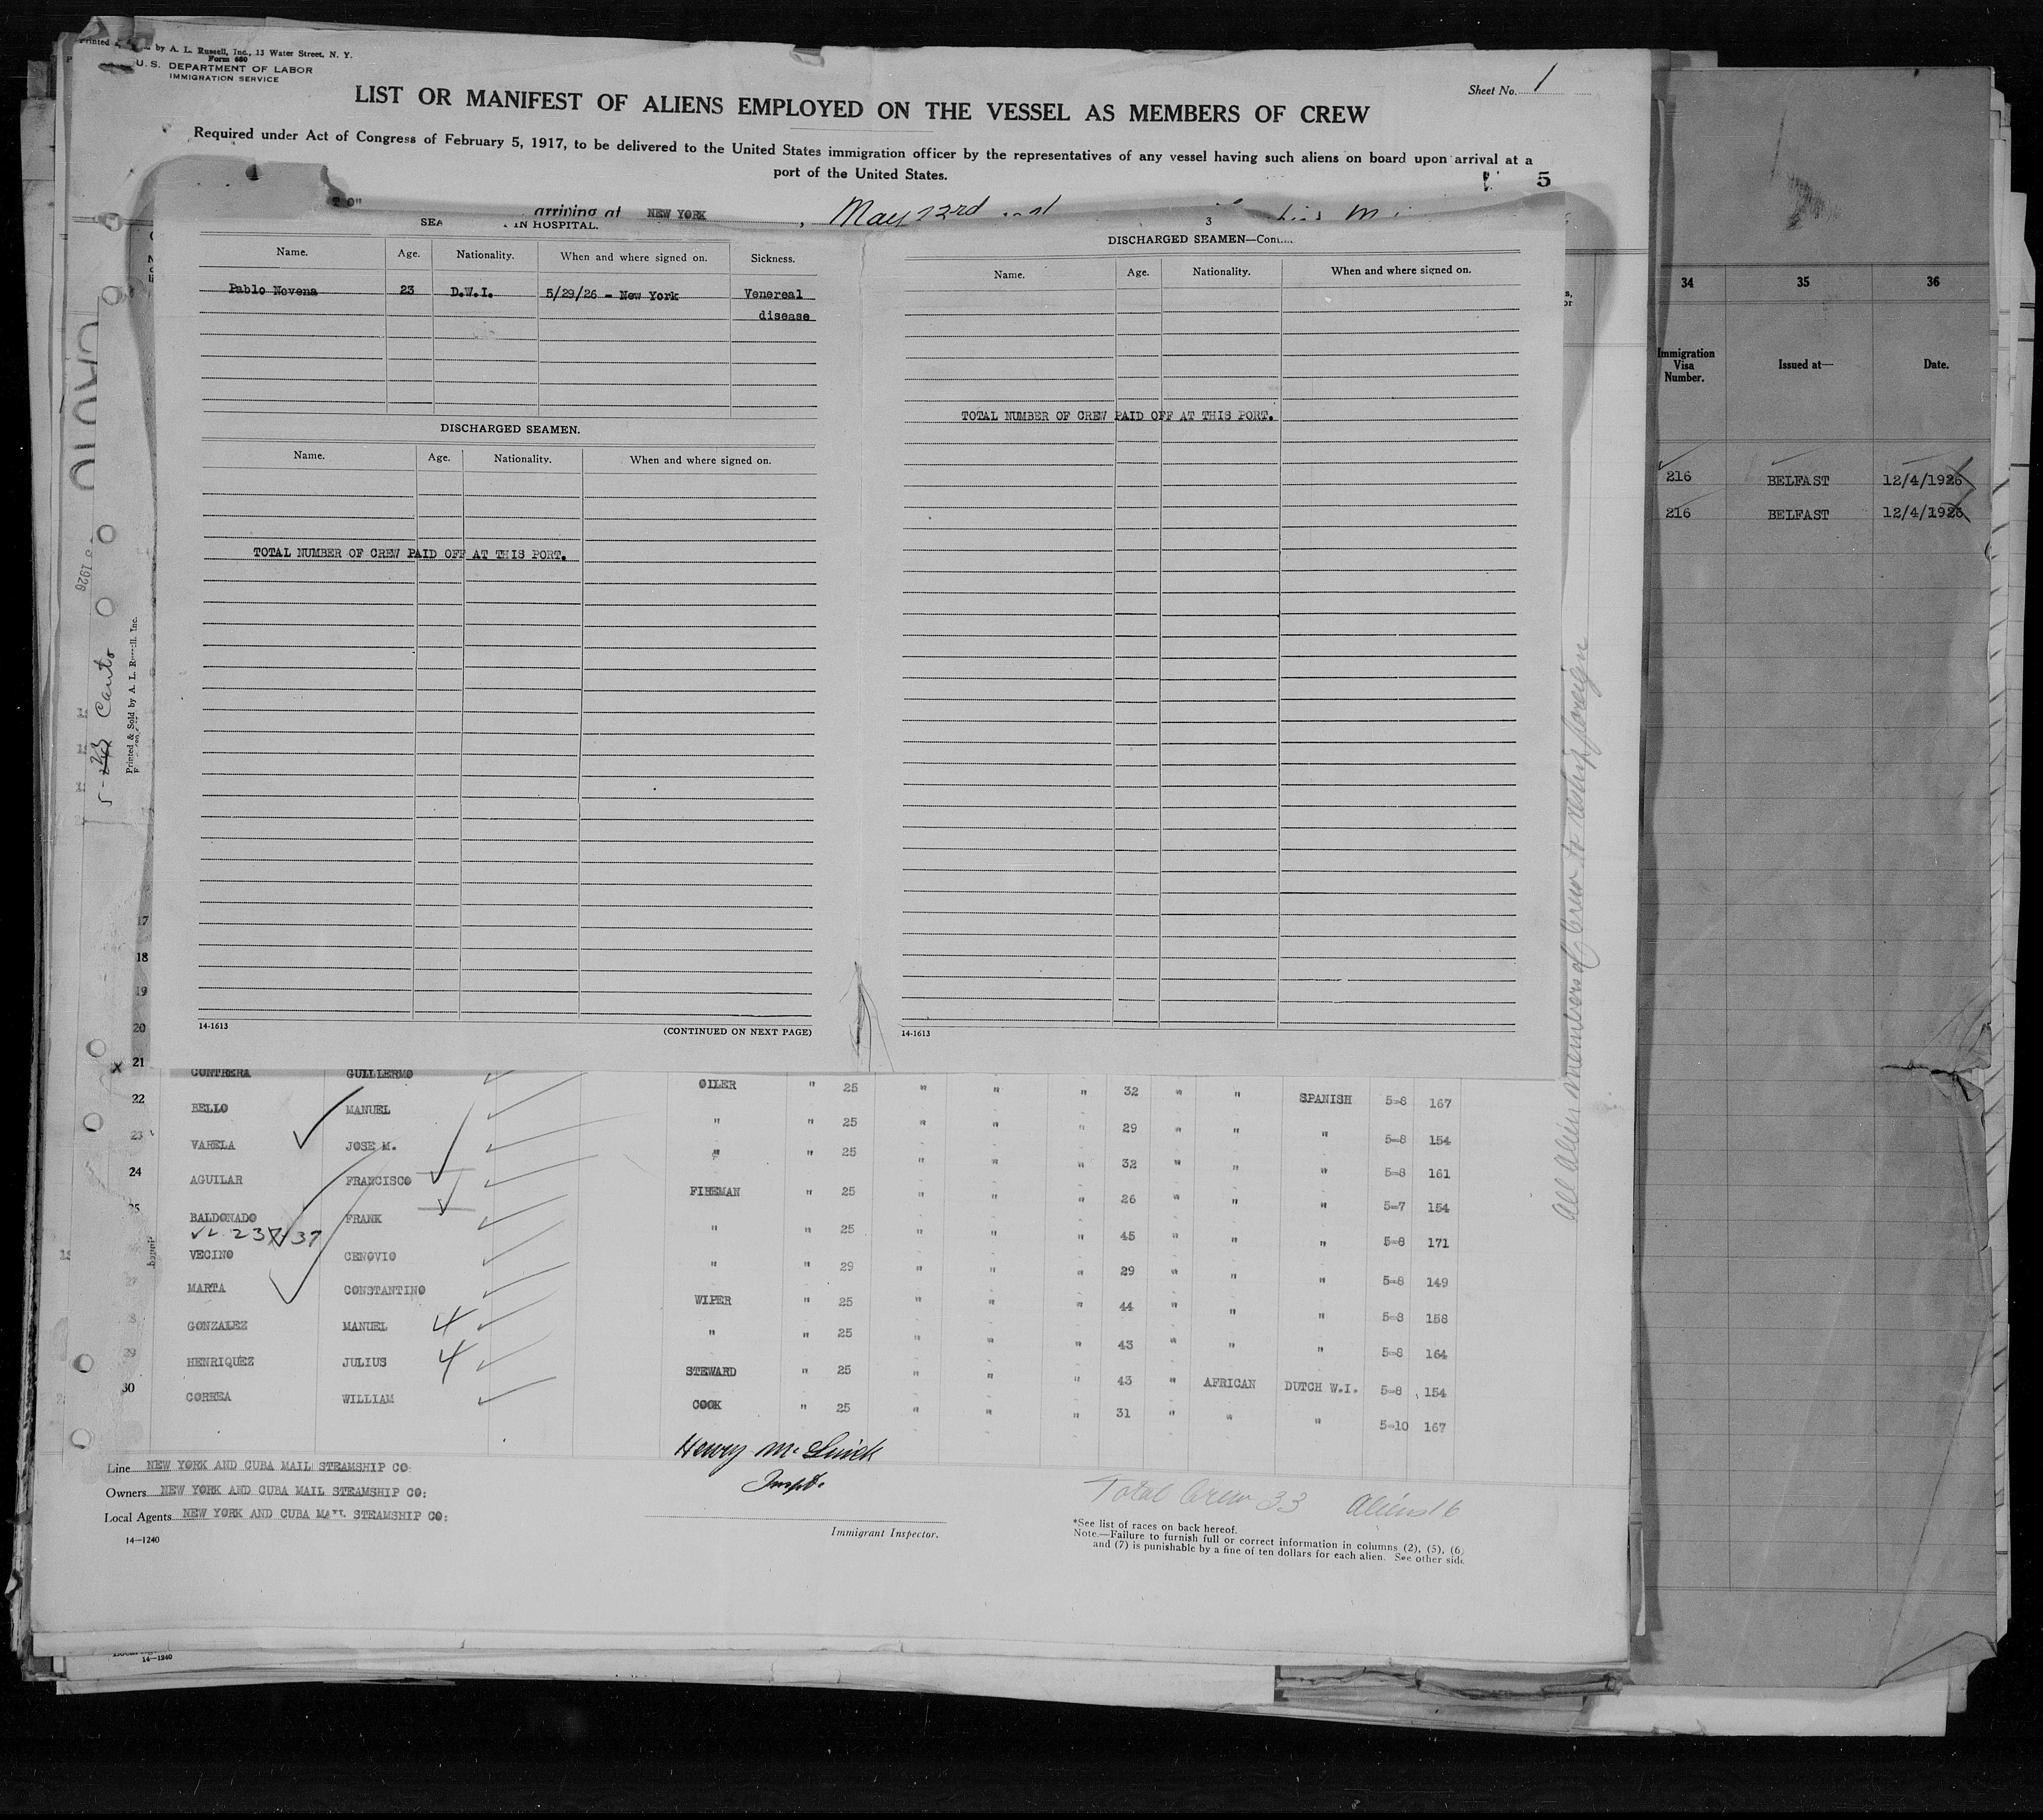 by A. L. Russell, Inc., 13 Water Street, N. Y.
Form 680
U. S. DEPARTMENT OF LABOR
IMMIGRATION SERVICE
Sheet No. 1
LIST OR MANIFEST OF ALIENS EMPLOYED ON THE VESSEL AS MEMBERS OF CREW
Required under Act of Congress of February 5, 1917, to be delivered to the United States immigration officer by the representatives of any vessel having such aliens on board upon arrival at a
port of the United States.
5
arriving at NEW YORK, May 23rd
3
IN HOSPITAL.
Name. Age. Nationality. When and where signed on. Sickness.
Pablo Novena 23 D.W.I. 5/29/26 - New York Venereal
disease
DISCHARGED SEAMEN.
Name. Age. Nationality. When and where signed on.
TOTAL NUMBER OF CREW PAID OFF AT THIS PORT.
14-1613 (CONTINUED ON NEXT PAGE)
DISCHARGED SEAMEN—Con
Name. Age. Nationality. When and where signed on.
TOTAL NUMBER OF CREW PAID OFF AT THIS PORT.
14-1613
34 35 36
Immigration Visa Number. Issued at— Date.
216 BELFAST 12/4/1926
216 BELFAST 12/4/1926
All Alien members of Crew to reship foreign
1926
Printed & Sold by A. L.
17
18
19
20
21 CONTRERA GUILLERMO OILER " 25 " " " 32 " " SPANISH 5-8 167
22 BELLO MANUEL " " 25 " " " 29 " " " 5-8 154
23 VARELA JOSE M. " " 25 " " " 32 " " " 5-8 161
24 AGUILAR FRANCISCO FIREMAN " 25 " " " 26 " " " 5-7 154
25 BALDONADO FRANK " " 25 " " " 45 " " " 5-8 171
VECINO CENOVIO " " 29 " " " 29 " " " 5-8 149
27 MARTA CONSTANTINO WIPER " 25 " " " 44 " " " 5-8 158
28 GONZALEZ MANUEL " " 25 " " " 43 " " " 5-8 164
29 HENRIQUEZ JULIUS STEWARD " 25 " " " 43 " AFRICAN DUTCH W.I. 5-8 154
30 CORREA WILLIAM COOK " 25 " " " 31 " " " 5-10 167
Line NEW YORK AND CUBA MAIL STEAMSHIP CO:
Owners NEW YORK AND CUBA MAIL STEAMSHIP CO:
Local Agents NEW YORK AND CUBA MAIL STEAMSHIP CO:
14—1240
Immigrant Inspector.
Total Crew 33 Aliens 16
*See list of races on back hereof.
Note.—Failure to furnish full or correct information in columns (2), (5), (6)
and (7) is punishable by a fine of ten dollars for each alien. See other side
14—1240